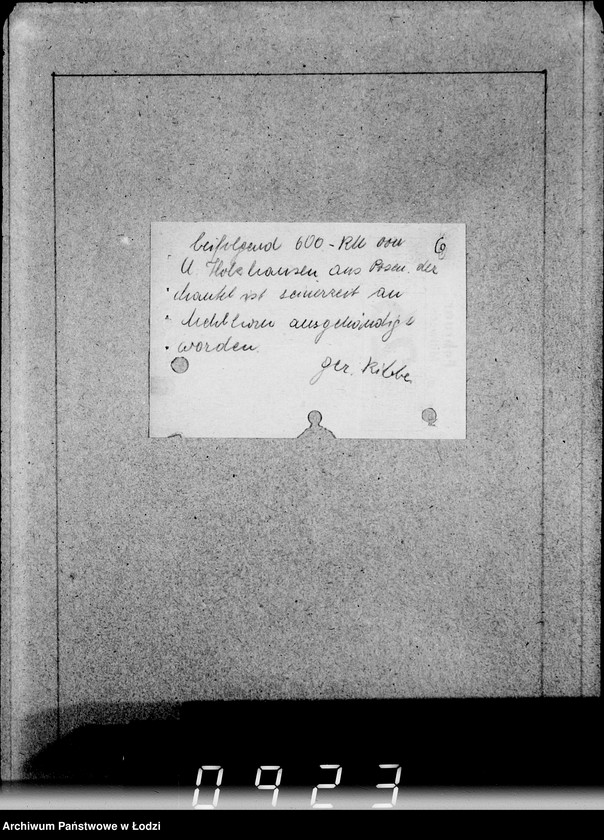 beifolgend 600-RM von
U. Holzhausen aus Posen. der
Mantel ist seinerzeit an
ausgehändigt
worden.
gez. Ribbe.
0923
Archiwum Państwowe w Łodzi